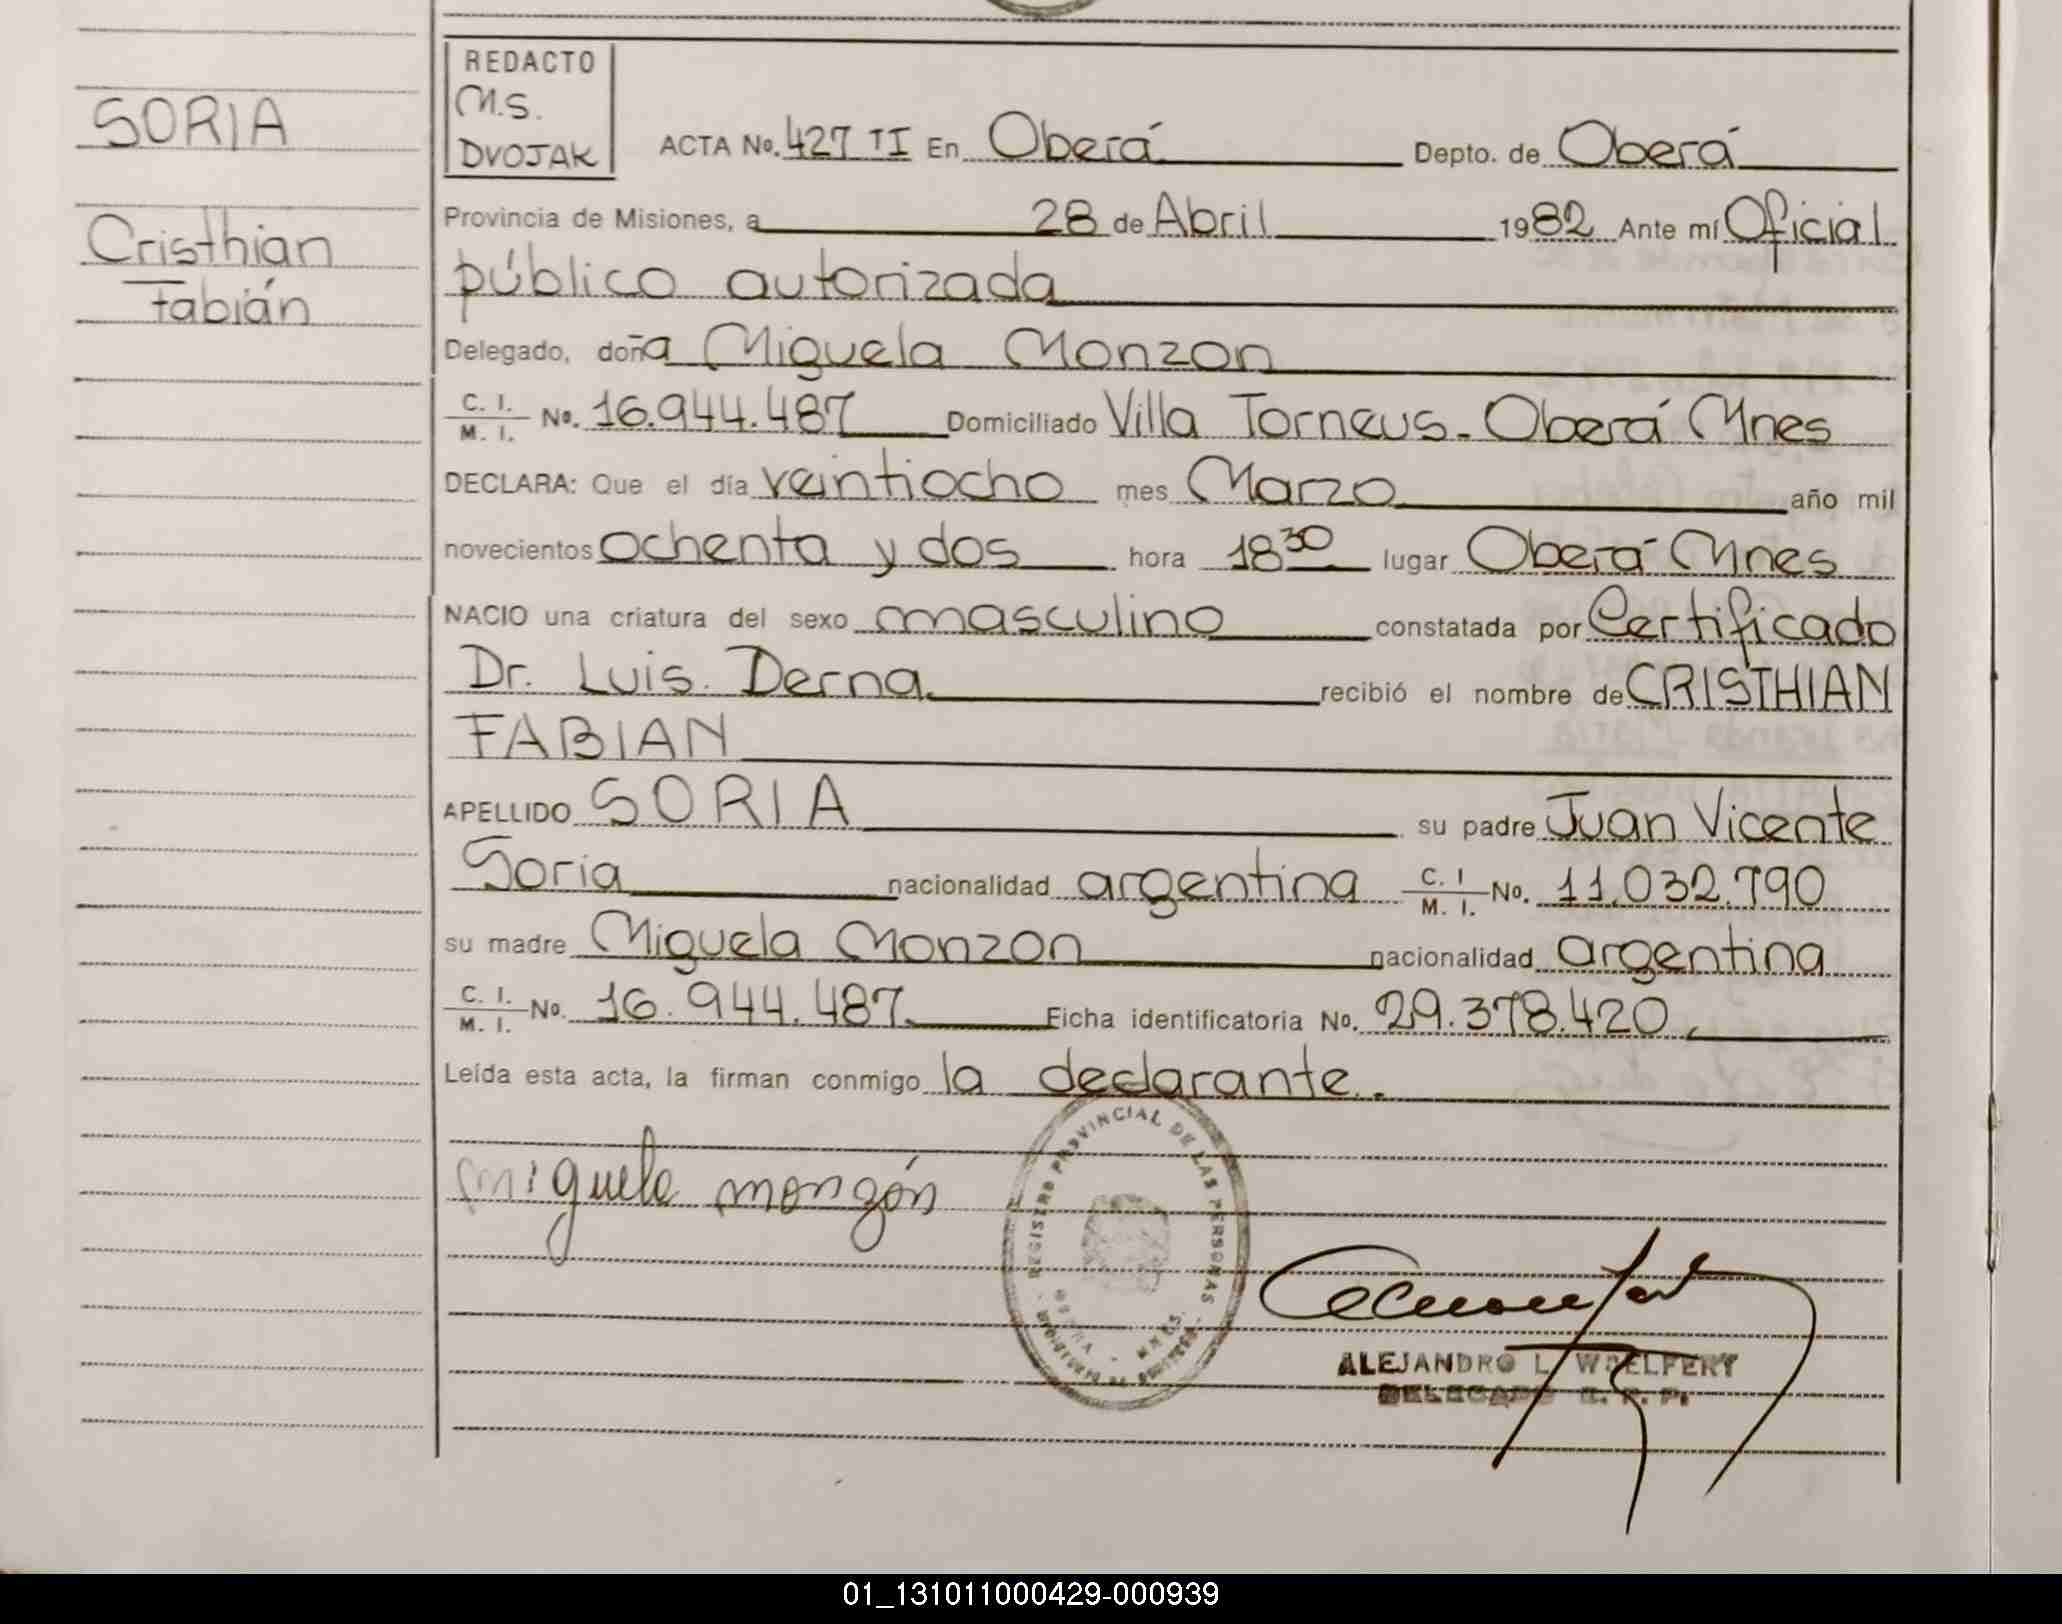 SORIA
Cristhian
Fabián
REDACTO
M.S.
DVOJAK
ACTA No. 427 TI En Oberá Depto. de Oberá
Provincia de Misiones, a 28 de Abril 1982 Ante mí Oficial
público autorizada
Delegado, doña Miguela Monzon
C. I. M. I. No. 16.944.487 Domiciliado Villa Torneus - Oberá Mnes
DECLARA: Que el día veintiocho mes Marzo año mil
novecientos ochenta y dos hora 18 30 lugar Oberá Mnes
NACIO una criatura del sexo masculino constatada por Certificado
Dr. Luis. Derna recibió el nombre de CRISTHIAN
FABIAN
APELLIDO SORIA su padre Juan Vicente
Soria nacionalidad argentina C. I M. I. No. 11.032.790
su madre Miguela Monzon nacionalidad argentina
C. I. M. I. No. 16.944.487 Ficha identificatoria No. 29.378.420.
Leída esta acta, la firman conmigo la declarante.
REGISTRO PROVINCIAL DE LAS PERSONAS
miguela monzón
ALEJANDRO L. WOELFERT
DELEGADO R. P. P.
01_131011000429-000939